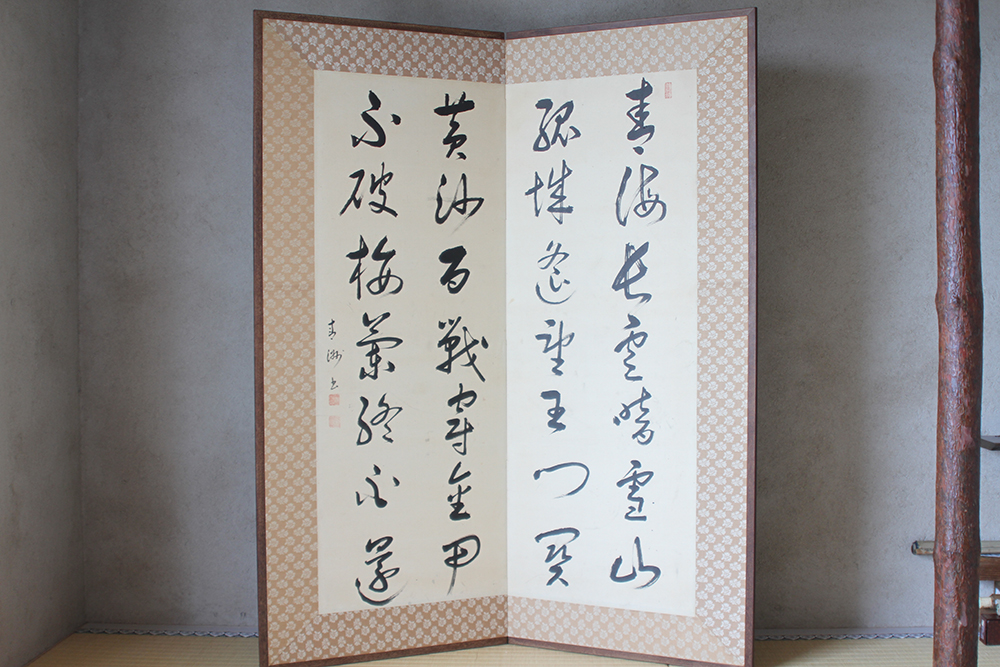 青海長雲暗雪山
孤城遙望玉門關
黄沙百戰穿金甲
不破樓蘭終不還
青洲書